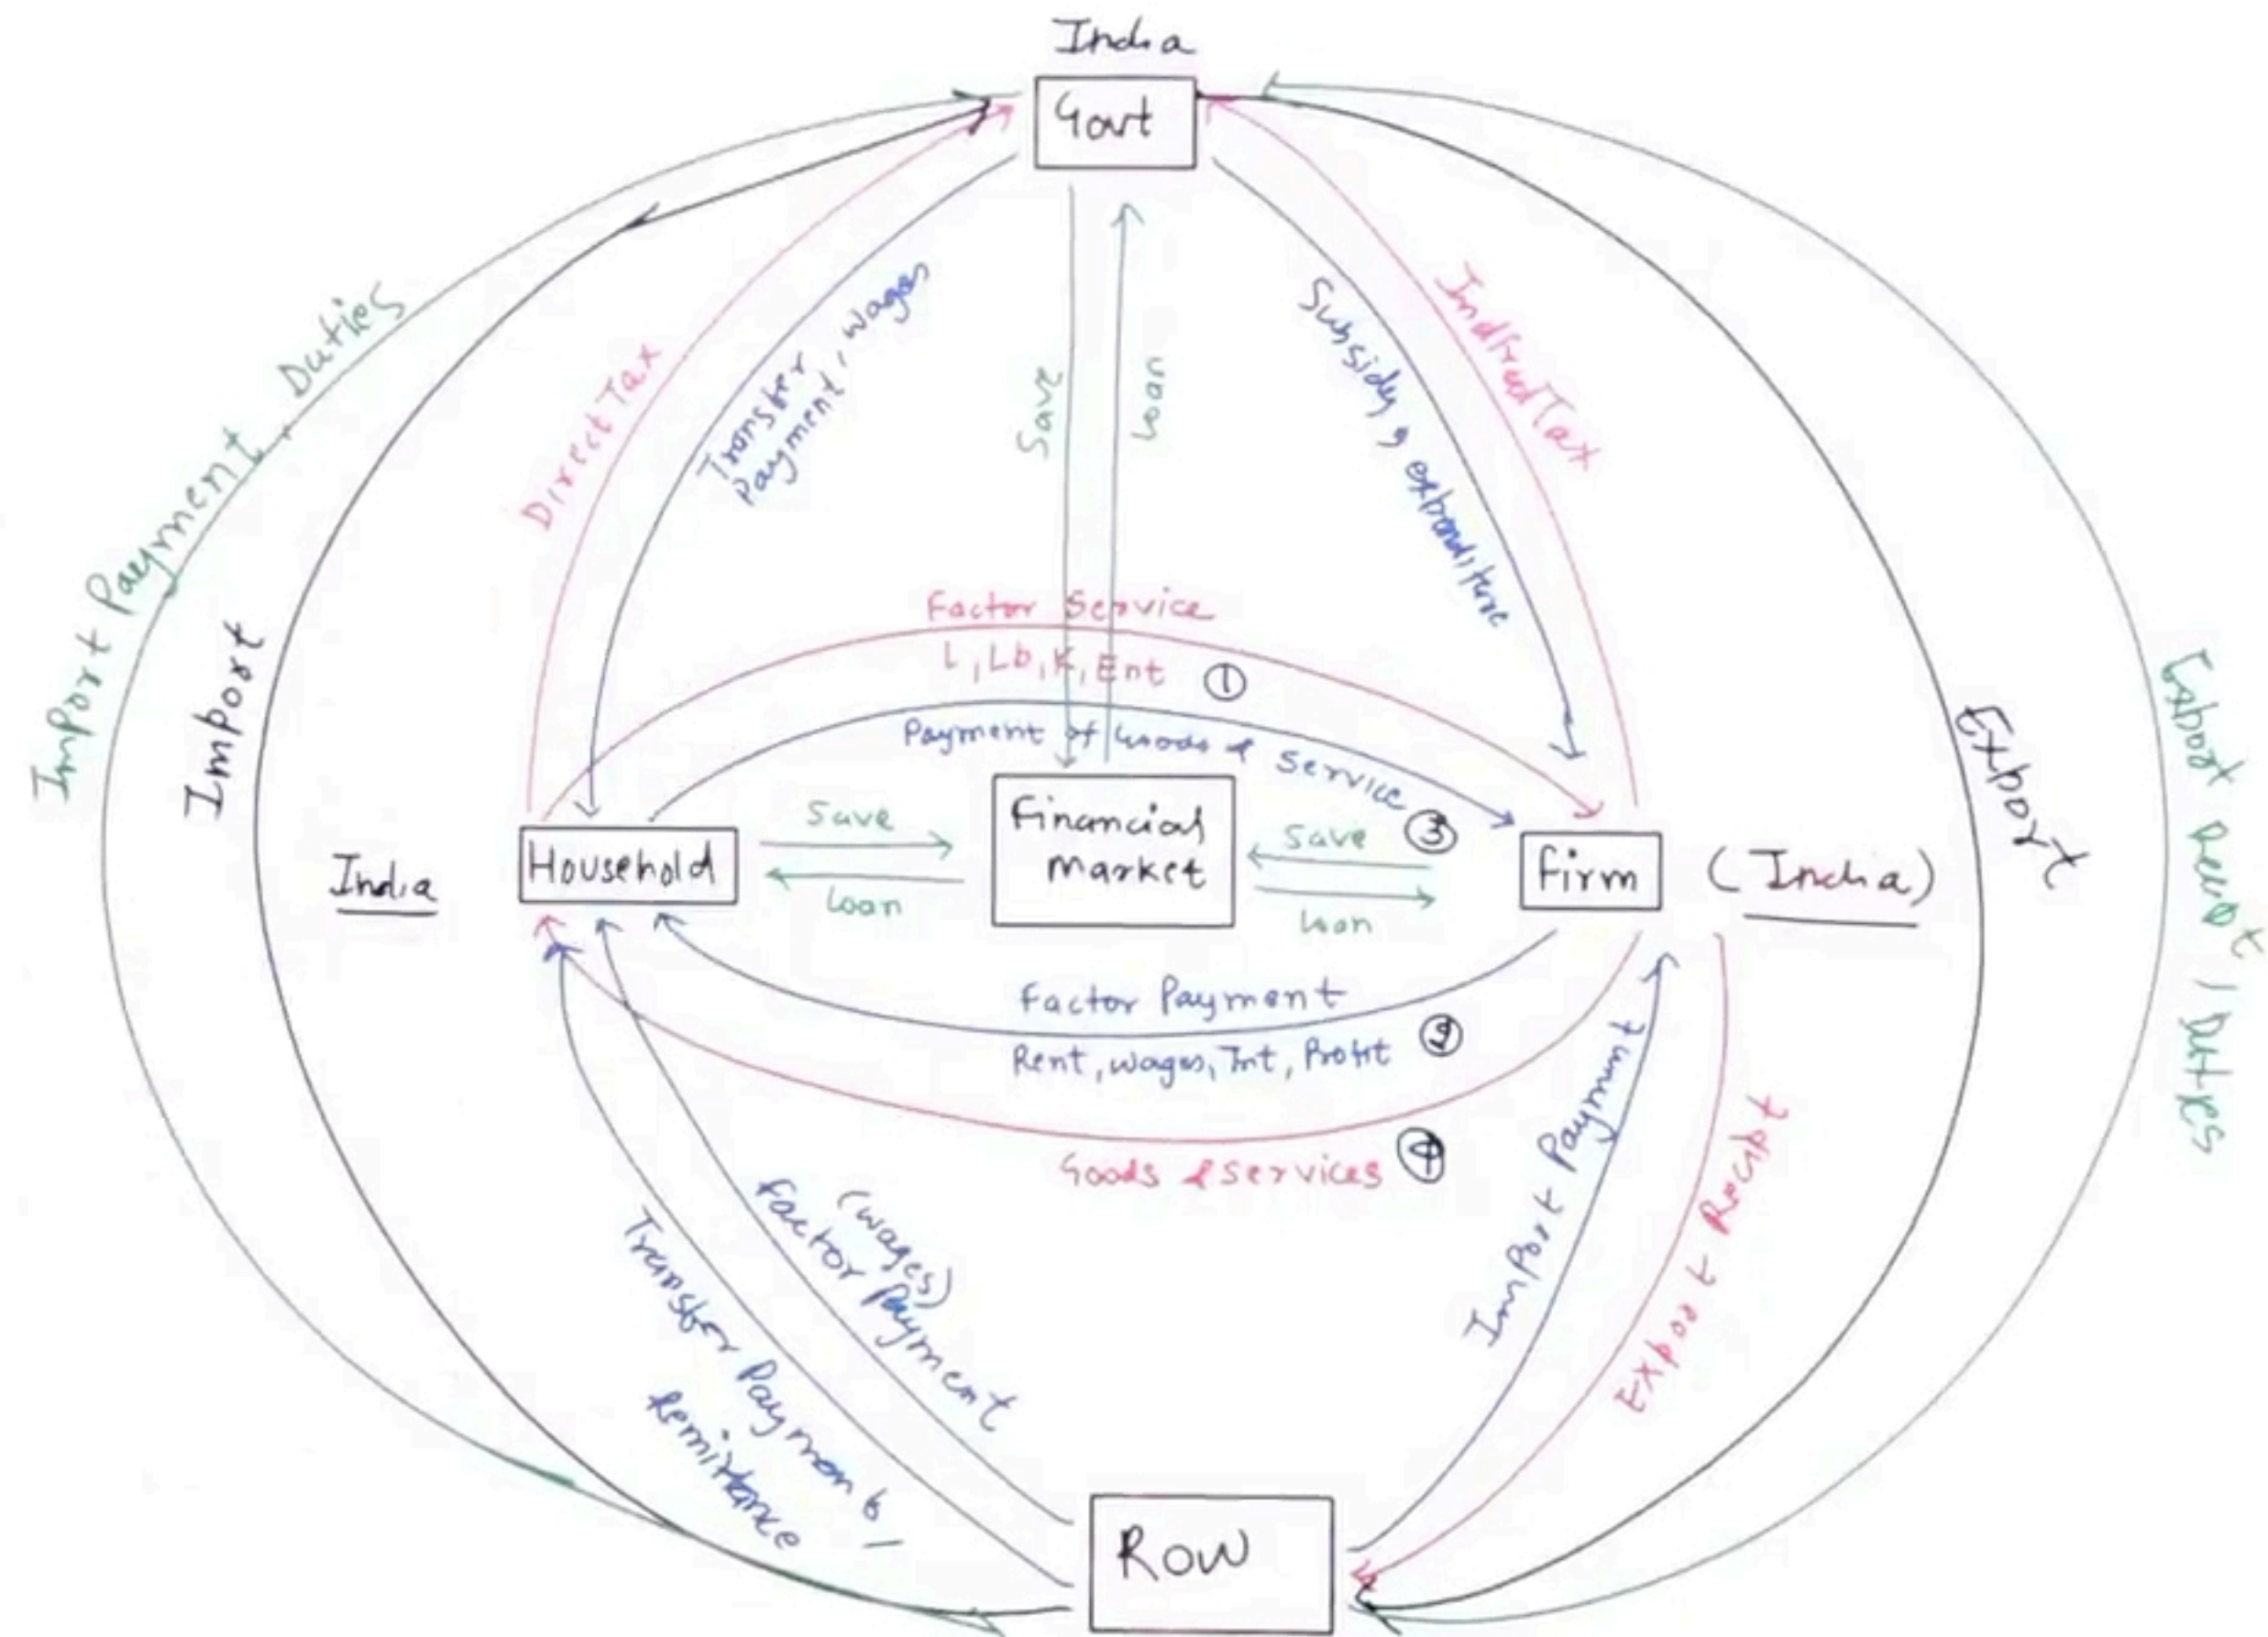 India
Govt
Import Payment, Duties
Import
Direct Tax
Transfer
Payment, wages
Save
Loan
Subsidy, expenditure
Indirect Tax
Export
Export / Duties
Factor Service
L, Lb, K, Ent ①
Payment of Goods & Service ③
India
Household
Save
Loan
Financial
market
Save
Loan
firm
(India)
Factor Payment
Rent, wages, Int, Profit ②
Goods & Services ④
(wages)
factor Payment
Transfer Payment /
Remittance
Import Payment
Export
ROW